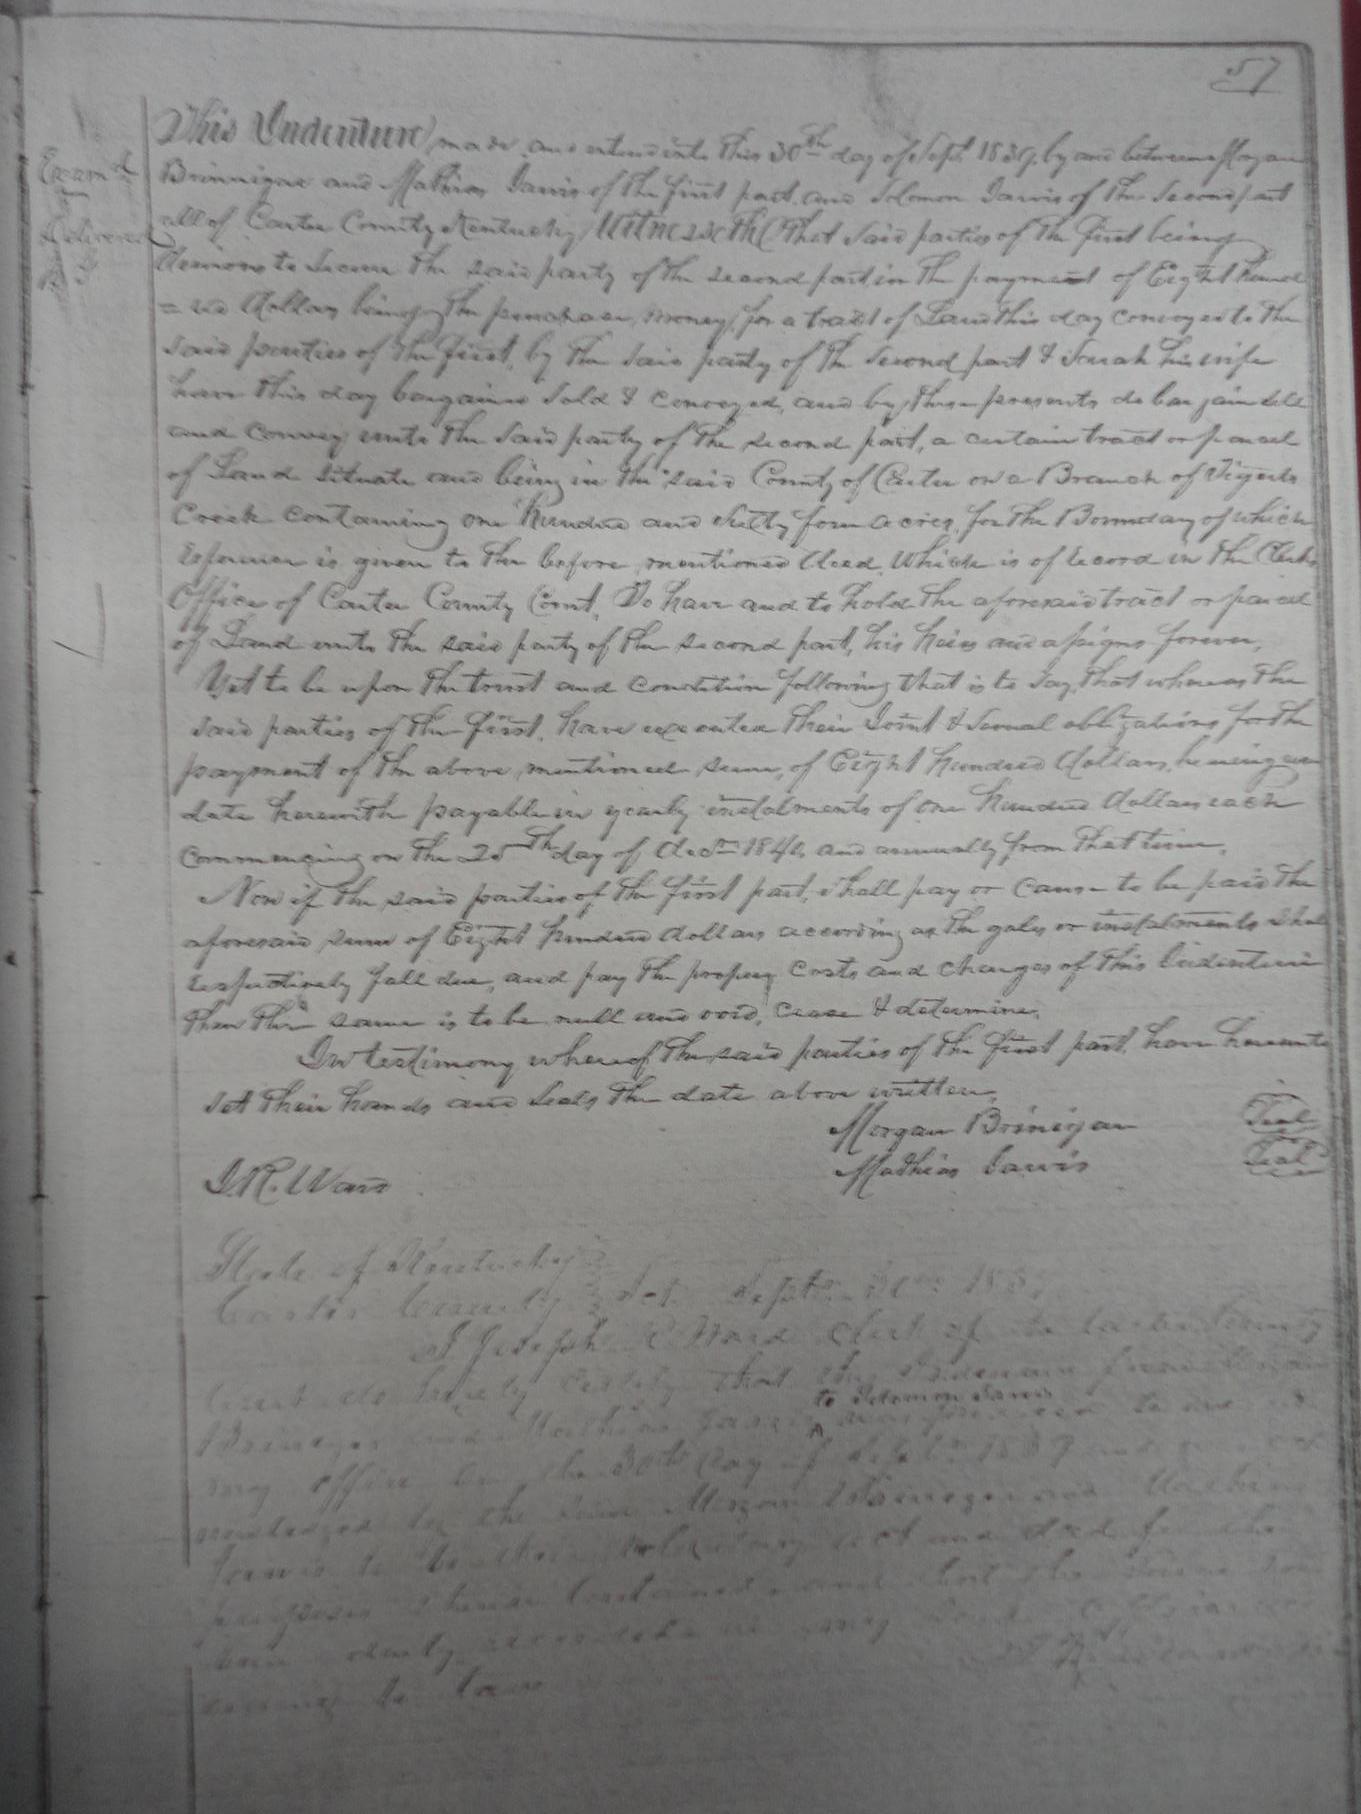 57
Exam'd
&
Delivered
This Indenture, made and entered into this 30th day of Sept 1839, by and between Morgan
Brinnigar and Mathias Davis of the first part, and Solomon Davis of the Second part
all of Carter County Kentucky, Witnesseth, That said parties of the first being
desirous to secure the said party of the second part in the payment of Eight hund
=red dollars being the purchase money, for a tract of Land this day conveyed to the
said parties of the first, by the said party of the second part & Sarah his wife
have this day bargained sold & conveyed, and by these presents do bargain sell
and convey unto the said party of the second part, a certain tract or parcel
of Land situate and being in the said County of Carter on a Branch of Tygerts
Creek containing one hundred and sixty four acres, for the Boundary of which
reference is given to the before mentioned deed, which is of record in the Clerks
Office of Carter County Court, To have and to hold the aforesaid tract or parcel
of Land unto the said party of the second part, his heirs and assigns forever,
Yet to be upon the trust and condition following that is to say, that whereas the
said parties of the first, have executed their Joint & several obligations for the
payment of the above mentioned sum, of Eight hundred dollars, bearing even
date herewith payable in yearly instalments of one hundred dollars each
commencing on the 25th day of Decr and annually from that time,
Now if the said parties of the first part, shall pay or cause to be paid the
aforesaid sum of Eight hundred dollars according as the gales or instalments shall
respectively fall due, and pay the proper costs and charges of this Indenture
then the same is to be null and void, cease & determine,
In testimony whereof the said parties of the first part, have hereunto
set their hands and seals the date above written,
Morgan Brinigar Seal
Mathias Davis Seal
J. R. Ward
State of Kentucky
Carter County Sct. Sept 30th 183
I Joseph R Ward Clerk of the Carter County
Court do hereby certify that this Indenture from Morgan
to Solomon Davis
Brinegar and Mathias Davis was produced to me in
my office on the 30th day of Sept 1839 and
by the said Morgan Brinegar and Mathias
Davis to be their voluntary act and deed for the
purposes therein contained and that the same has
been duly recorded in my said office
to law